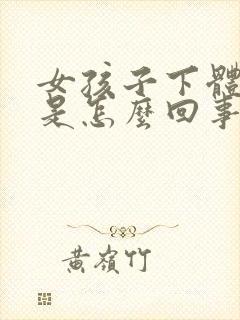 女孩子下體
是怎麼回事
黃嶺竹